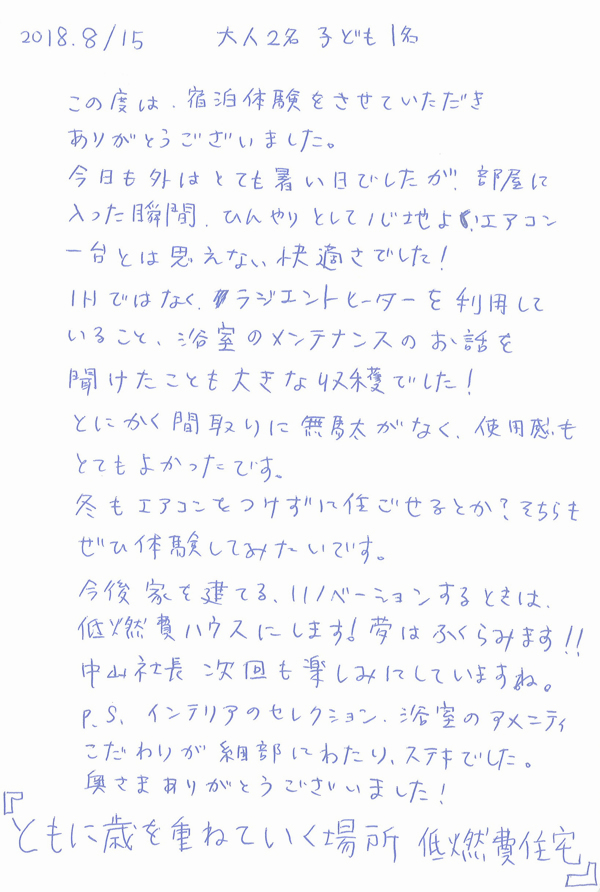 2018.8/15 大人2名 子ども1名
この度は、宿泊体験をさせていただき
ありがとうございました。
今日も外はとても暑い日でしたが、部屋に
入った瞬間、ひんやりとして心地よい、エアコン
一台とは思えない快適さでした!
IHではなく、ラジエントヒーターを利用して
いること、浴室のメンテナンスのお話を
聞けたことも大きな収穫でした!
とにかく間取りに無駄がなく、使用感も
とてもよかったです。
冬もエアコンをつけずに住ごせるとか?そちらも
ぜひ体験してみたいです。
今後家を建てる、リノベーションするときは、
低燃費ハウスにします!夢はふくらみます!!
中山社長 次回も楽しみにしていますね。
P.S. インテリアのセレクション、浴室のアメニティ
こだわりが細部にわたり、ステキでした。
奥さまありがとうございました!
『ともに歳を重ねていく場所 低燃費住宅』